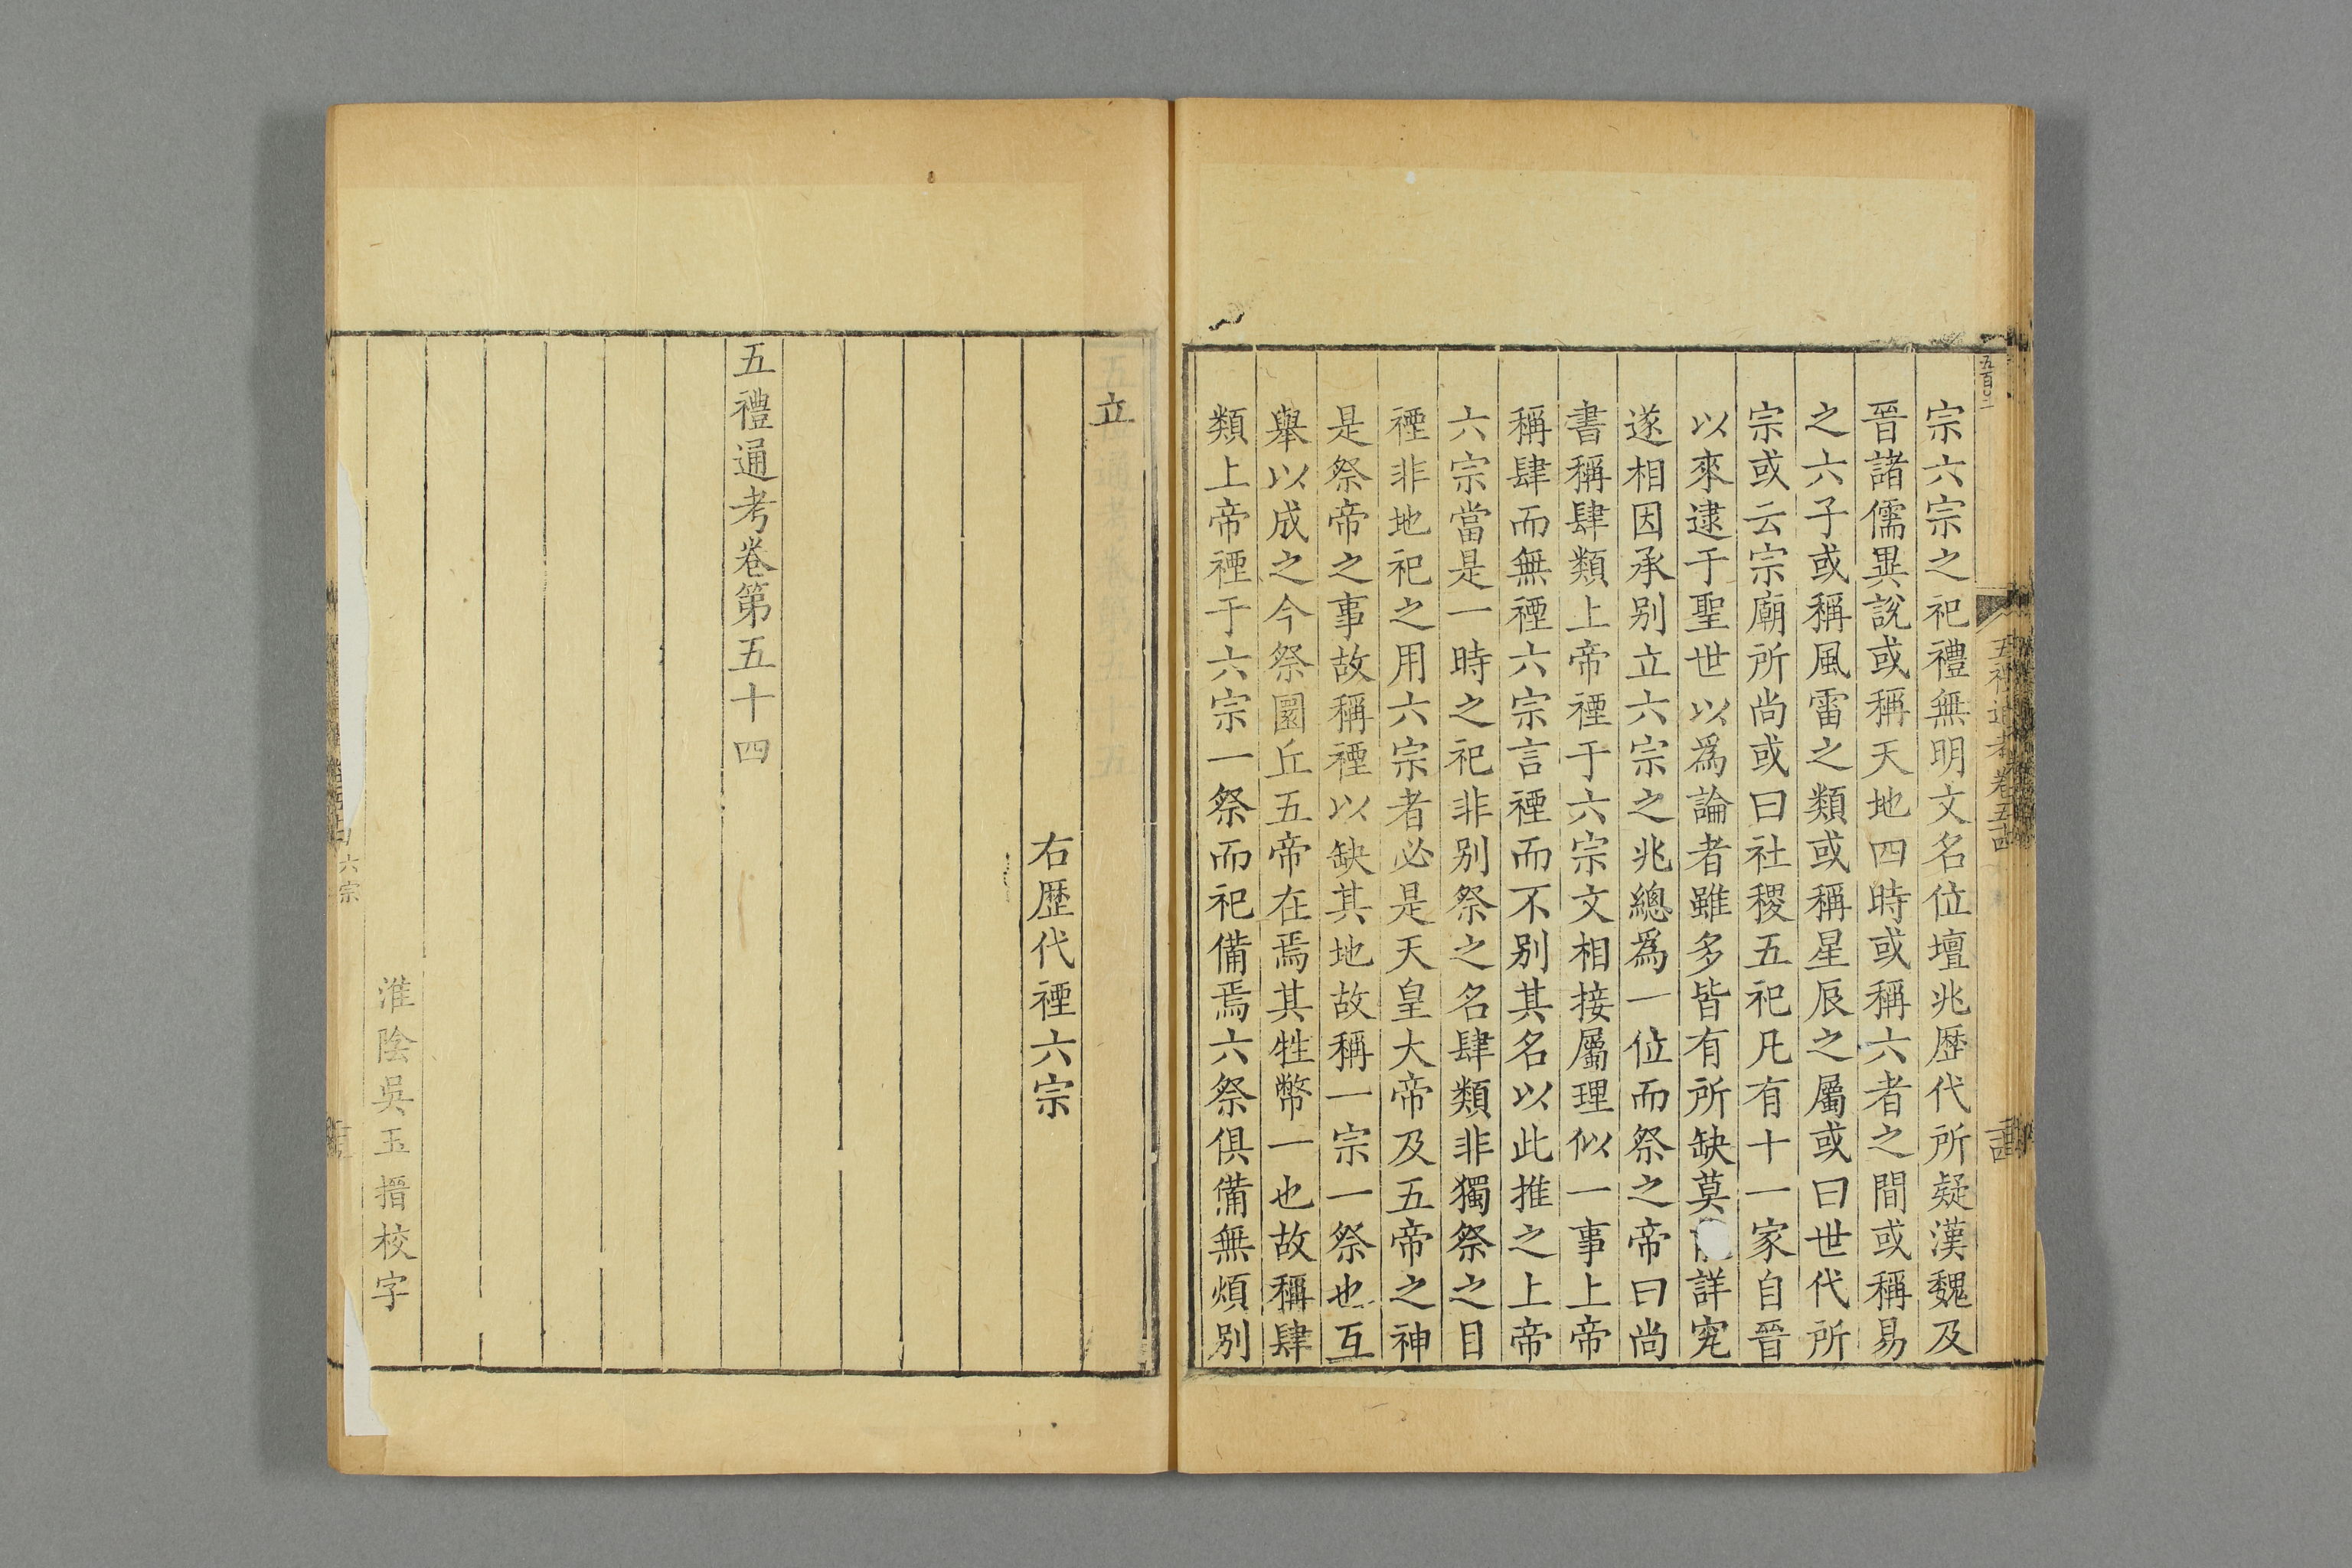 五百〇二
五禮通考卷五十四
宗六宗之祀禮無明文名位壇兆歷代所疑漢魏及
晉諸儒異說或稱天地四時或稱六者之間或稱易
之六子或稱風雷之類或稱星辰之屬或曰世代所
宗或云宗廟所尚或曰社稷五祀凡有十一家自晉
以來逮于聖世以爲論者雖多皆有所缺莫詳究
遂相因承别立六宗之兆總爲一位而祭之帝曰尚
書稱肆類上帝禋于六宗文相接屬理似一事上帝
稱肆而無禋六宗言禋而不别其名以此推之上帝
六宗當是一時之祀非别祭之名肆類非獨祭之目
禋非地祀之用六宗者必是天皇大帝及五帝之神
是祭帝之事故稱禋以缺其地故稱一宗一祭也互
舉以成之今祭圜丘五帝在焉其牲幣一也故稱肆
類上帝禋于六宗一祭而祀備焉六祭俱備無煩别
立
右歷代禋六宗
五禮通考卷第五十四
淮陰吳玉搢校字
六宗